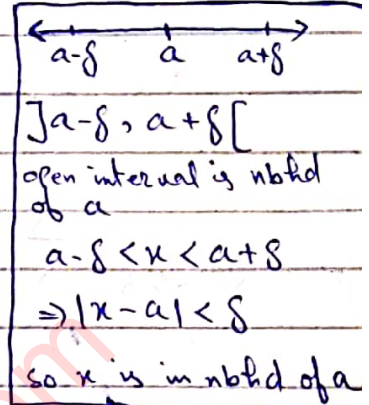 a-δ a a+δ
]a-δ, a+δ[
open interval is nbhd
of a
a-δ < x < a+δ
⇒ |x-a| < δ
so x is in nbhd of a